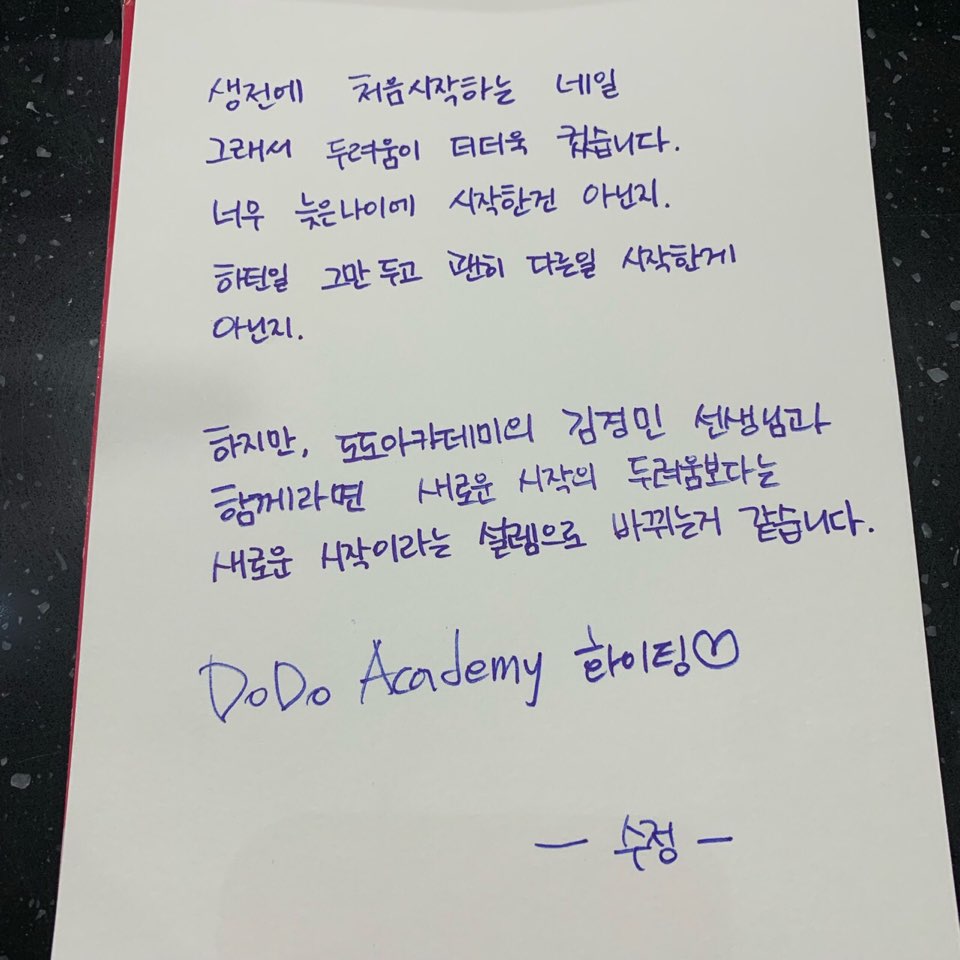 생전에 처음시작하는 네일
그래서 두려움이 더더욱 컸습니다.
너무 늦은나이에 시작한건 아닌지.
하던일 그만두고 괜히 다른일 시작한게
아닌지.
하지만, 도도아캬데미의 김경민 선생님과
함께라면 새로운 시작의 두려움보다는
새로운 시작이라는 설렘으로 바뀌는거 같습니다.
DoDo Academy 화이팅♡
- 수정 -